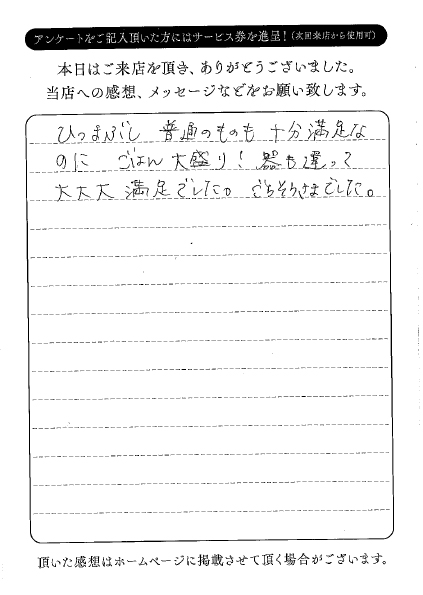 アンケートをご記入頂いた方にはサービス券を進呈！（次回来店から使用可）
本日はご来店を頂き、ありがとうございました。
当店への感想、メッセージなどをお願い致します。
ひつまぶし 普通のものも 十分満足な
のに ごはん大盛り！ 器も違って
大大大 満足でした。 ごちそうさまでした。
頂いた感想はホームページに掲載させて頂く場合がございます。